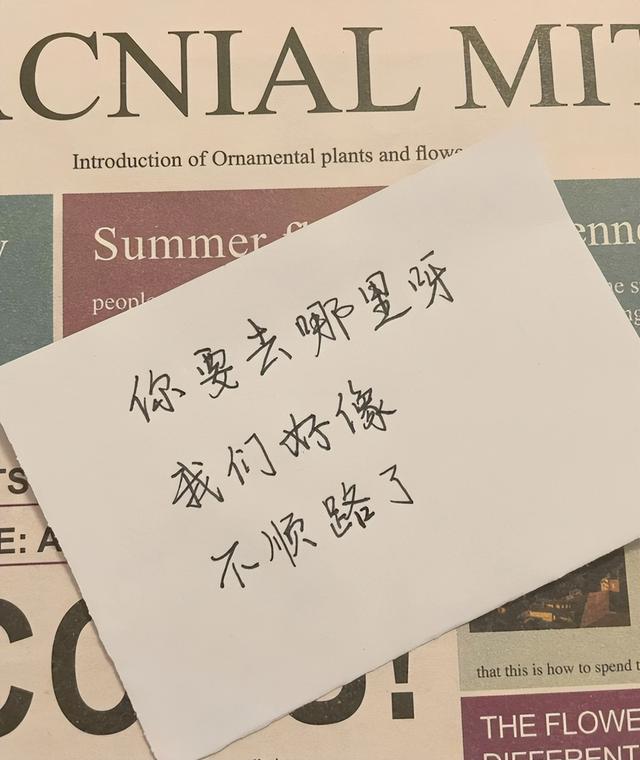 ACNIAL MIT
Introduction of Ornamental plants and flowe
Summer
people
ne s
你要去哪里呀
我们好像
不顺路了
TS
E: A
that this is how to spend t
THE FLOWE
DIFFERENT